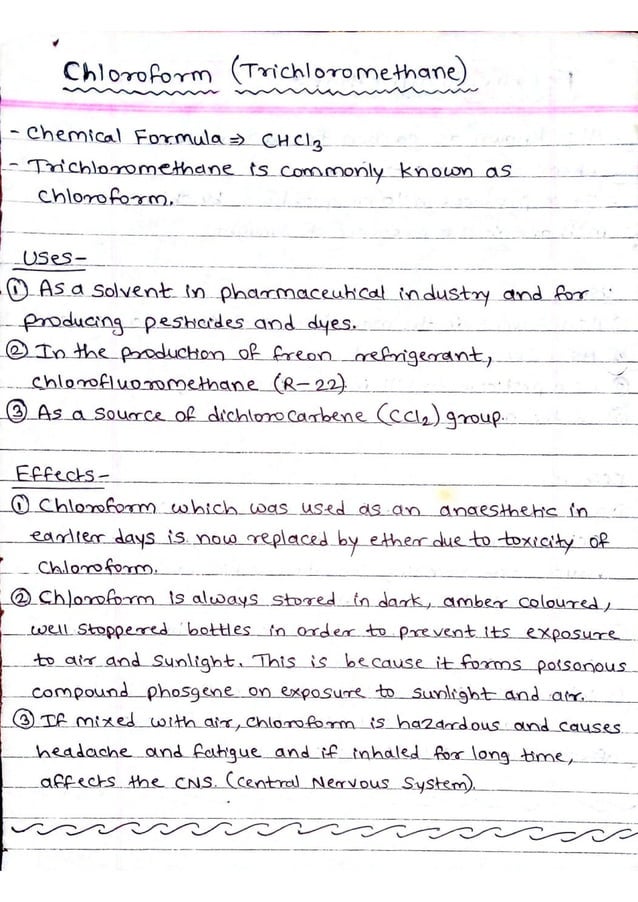 Chloroform (Trichloromethane)
- Chemical Formula ⇒ CHCl₃
- Trichloromethane is commonly known as
chloroform.
Uses-
① As a solvent in pharmaceutical industry and for
producing pesticides and dyes.
② In the production of freon refrigerant,
chlorofluoromethane (R-22)
③ As a source of dichlorocarbene (CCl₂) group.
Effects-
① Chloroform which was used as an anaesthetic in
earlier days is now replaced by ether due to toxicity of
Chloroform.
② Chloroform is always stored in dark, amber coloured,
well stoppered bottles in order to prevent its exposure
to air and sunlight. This is because it forms poisonous
compound phosgene on exposure to sunlight and air.
③ If mixed with air, chloroform is hazardous and causes
headache and fatigue and if inhaled for long time,
affects the CNS. (Central Nervous System).